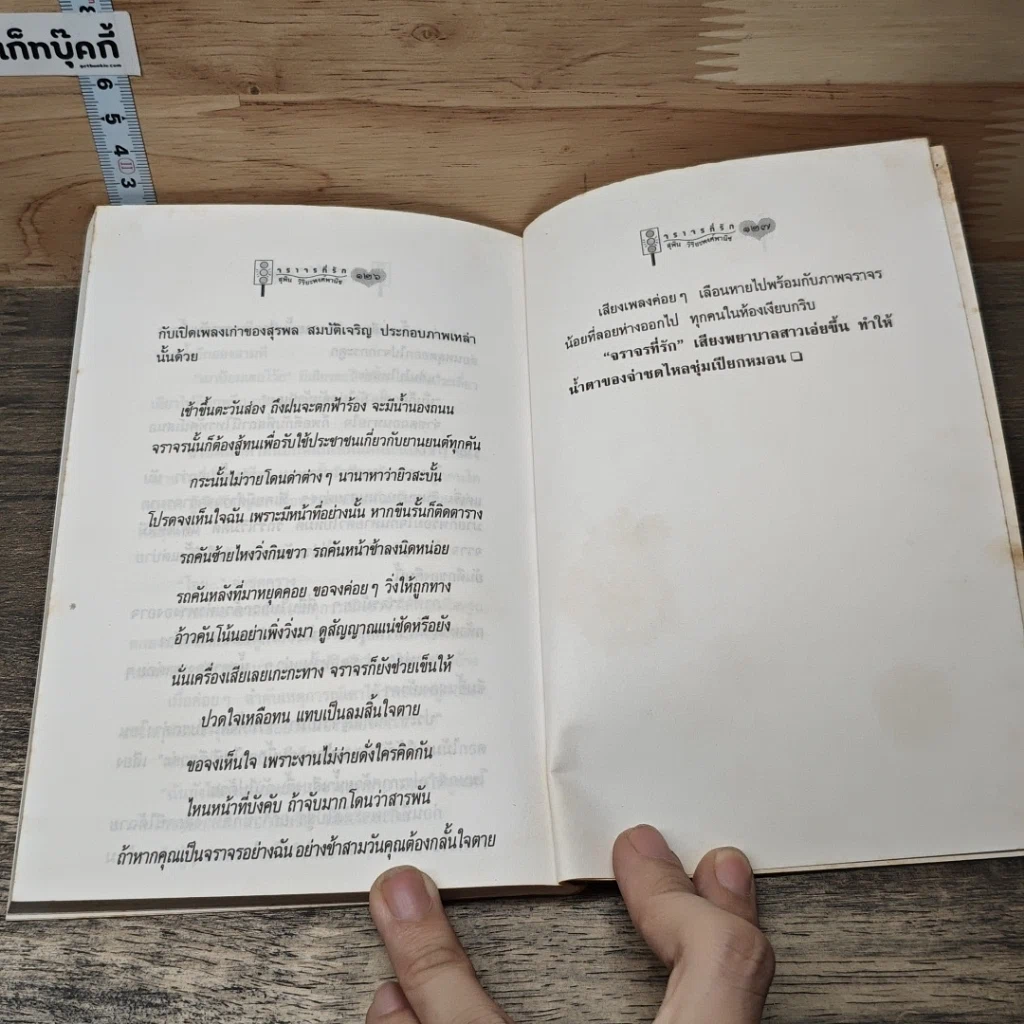 เก็ทบุ๊คกี้
getbookie.com
6
5
4
3
จราจรที่รัก
สุพัน วิริยะพงศ์พานิช
๑๒๖
กับเปิดเพลงเก่าของสุรพล สมบัติเจริญ ประกอบภาพเหล่า
นั้นด้วย
เช้าขึ้นตะวันส่อง ถึงฝนจะตกฟ้าร้อง จะมีน้ำนองถนน
จราจรนั้นก็ต้องสู้ทนเพื่อรับใช้ประชาชนเกี่ยวกับยานยนต์ทุกคัน
กระนั้นไม่วายโดนด่าต่างๆ นานาหาว่ายิวสะบั้น
โปรดจงเห็นใจฉัน เพราะมีหน้าที่อย่างนั้น หากขืนรั้นก็ติดตาราง
รถคันซ้ายไหงวิ่งกินขวา รถคันหน้าช้าลงนิดหน่อย
รถคันหลังที่มาหยุดคอย ขอจงค่อยๆ วิ่งให้ถูกทาง
อ้าวคันโน้นอย่าเพิ่งวิ่งมา ดูสัญญาณแน่ชัดหรือยัง
นั่นเครื่องเสียเลยเกะกะทาง จราจรก็ยังช่วยเข็นให้
ปวดใจเหลือทน แทบเป็นลมสิ้นใจตาย
ขอจงเห็นใจ เพราะงานไม่ง่ายดั่งใครคิดกัน
ไหนหน้าที่บังคับ ถ้าจับมากโดนว่าสารพัน
ถ้าหากคุณเป็นจราจรอย่างฉัน อย่างช้าสามวันคุณต้องกลั้นใจตาย
จราจรที่รัก
สุพัน วิริยะพงศ์พานิช
๑๒๗
เสียงเพลงค่อยๆ เลือนหายไปพร้อมกับภาพจราจร
น้อยที่ลอยห่างออกไป ทุกคนในห้องเงียบกริบ
“จราจรที่รัก” เสียงพยาบาลสาวเอ่ยขึ้น ทำให้
น้ำตาของจ่าชดไหลชุ่มเปียกหมอน ❏